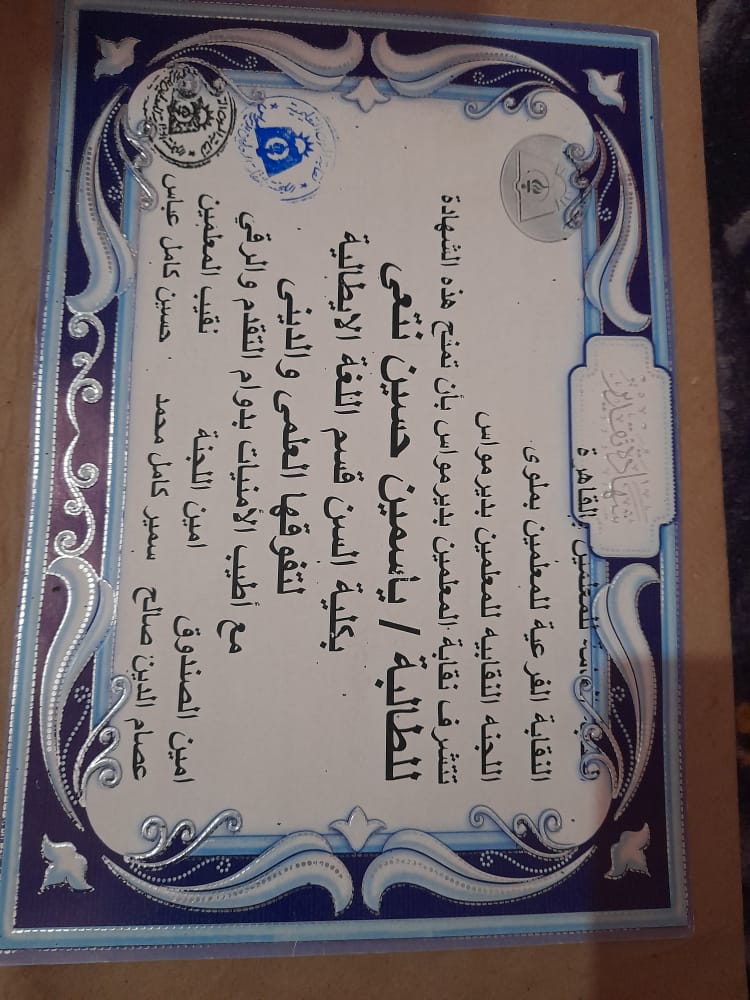 شهادة تقدير
للمعلمين بالقاهرة
النقابة الفرعية للمعلمين بملوى
اللجنه النقابيه للمعلمين بديرمواس
تتشرف نقابة المعلمين بديرمواس بأن تمنح هذه الشهادة
للطالبة / ياسمين حسين نتعى
بكلية السن قسم اللغة الايطالية
لتفوقها العلمى والدينى
مع أطيب الأمنيات بدوام التقدم والرقي
امين الصندوق امين اللجنة نقيب المعلمين
عصام الدين صالح سمير كامل محمد حسين كامل عباس